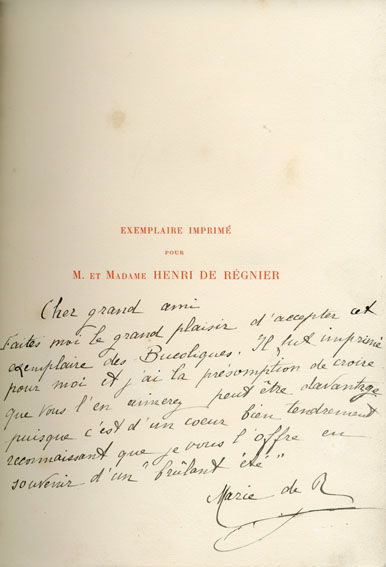 EXEMPLAIRE IMPRIMÉ
POUR
M. ET MADAME HENRI DE RÉGNIER
Cher grand ami
Faites moi le grand plaisir d'accepter cet
exemplaire des Bucoliques. Il fut imprimé
pour moi et j'ai la présomption de croire
que vous l'en aimerez peut être davantage
puisque c'est d'un coeur bien tendrement
reconnaissant que je vous l'offre en
souvenir d'un "brûlant été"
Marie de R